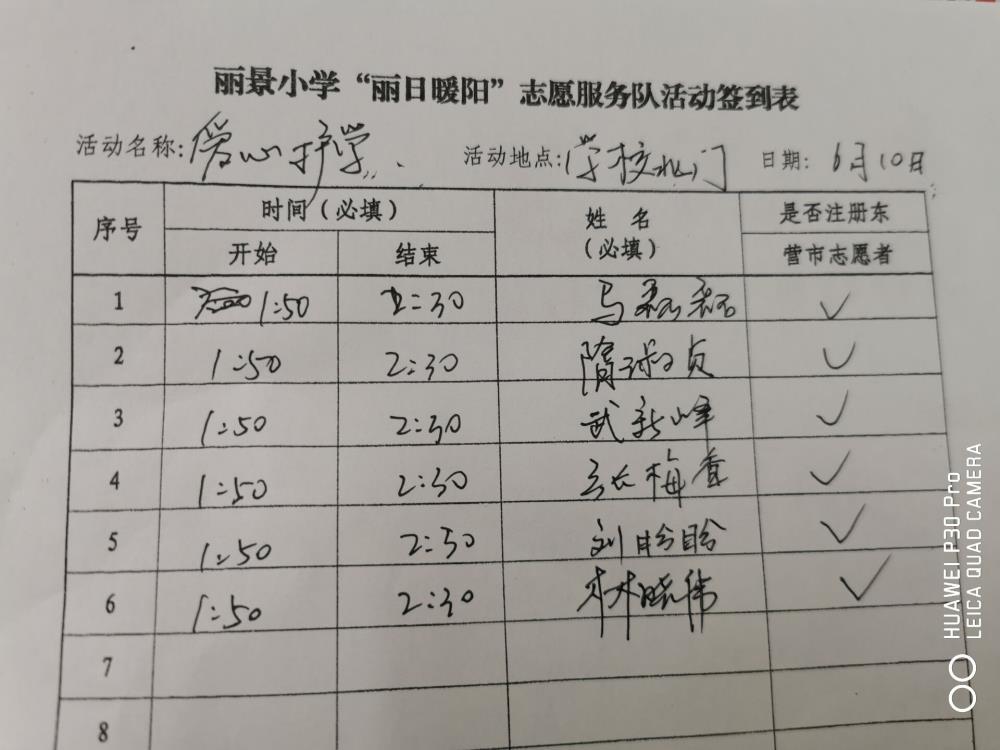 丽景小学“丽日暖阳”志愿服务队活动签到表
活动名称:爱心护学 活动地点:学校北门 日期: 6月10日
序号 时间(必填) 姓 名 (必填) 是否注册东
开始 结束 营市志愿者
1 1:50 2:30 马磊磊 ✓
2 1:50 2:30 隋淑贞 ✓
3 1:50 2:30 武新峰 ✓
4 1:50 2:30 张梅香 ✓
5 1:50 2:30 刘盼盼 ✓
6 1:50 2:30 林晓伟 ✓
7
8
HUAWEI P30 Pro
LEICA QUAD CAMERA